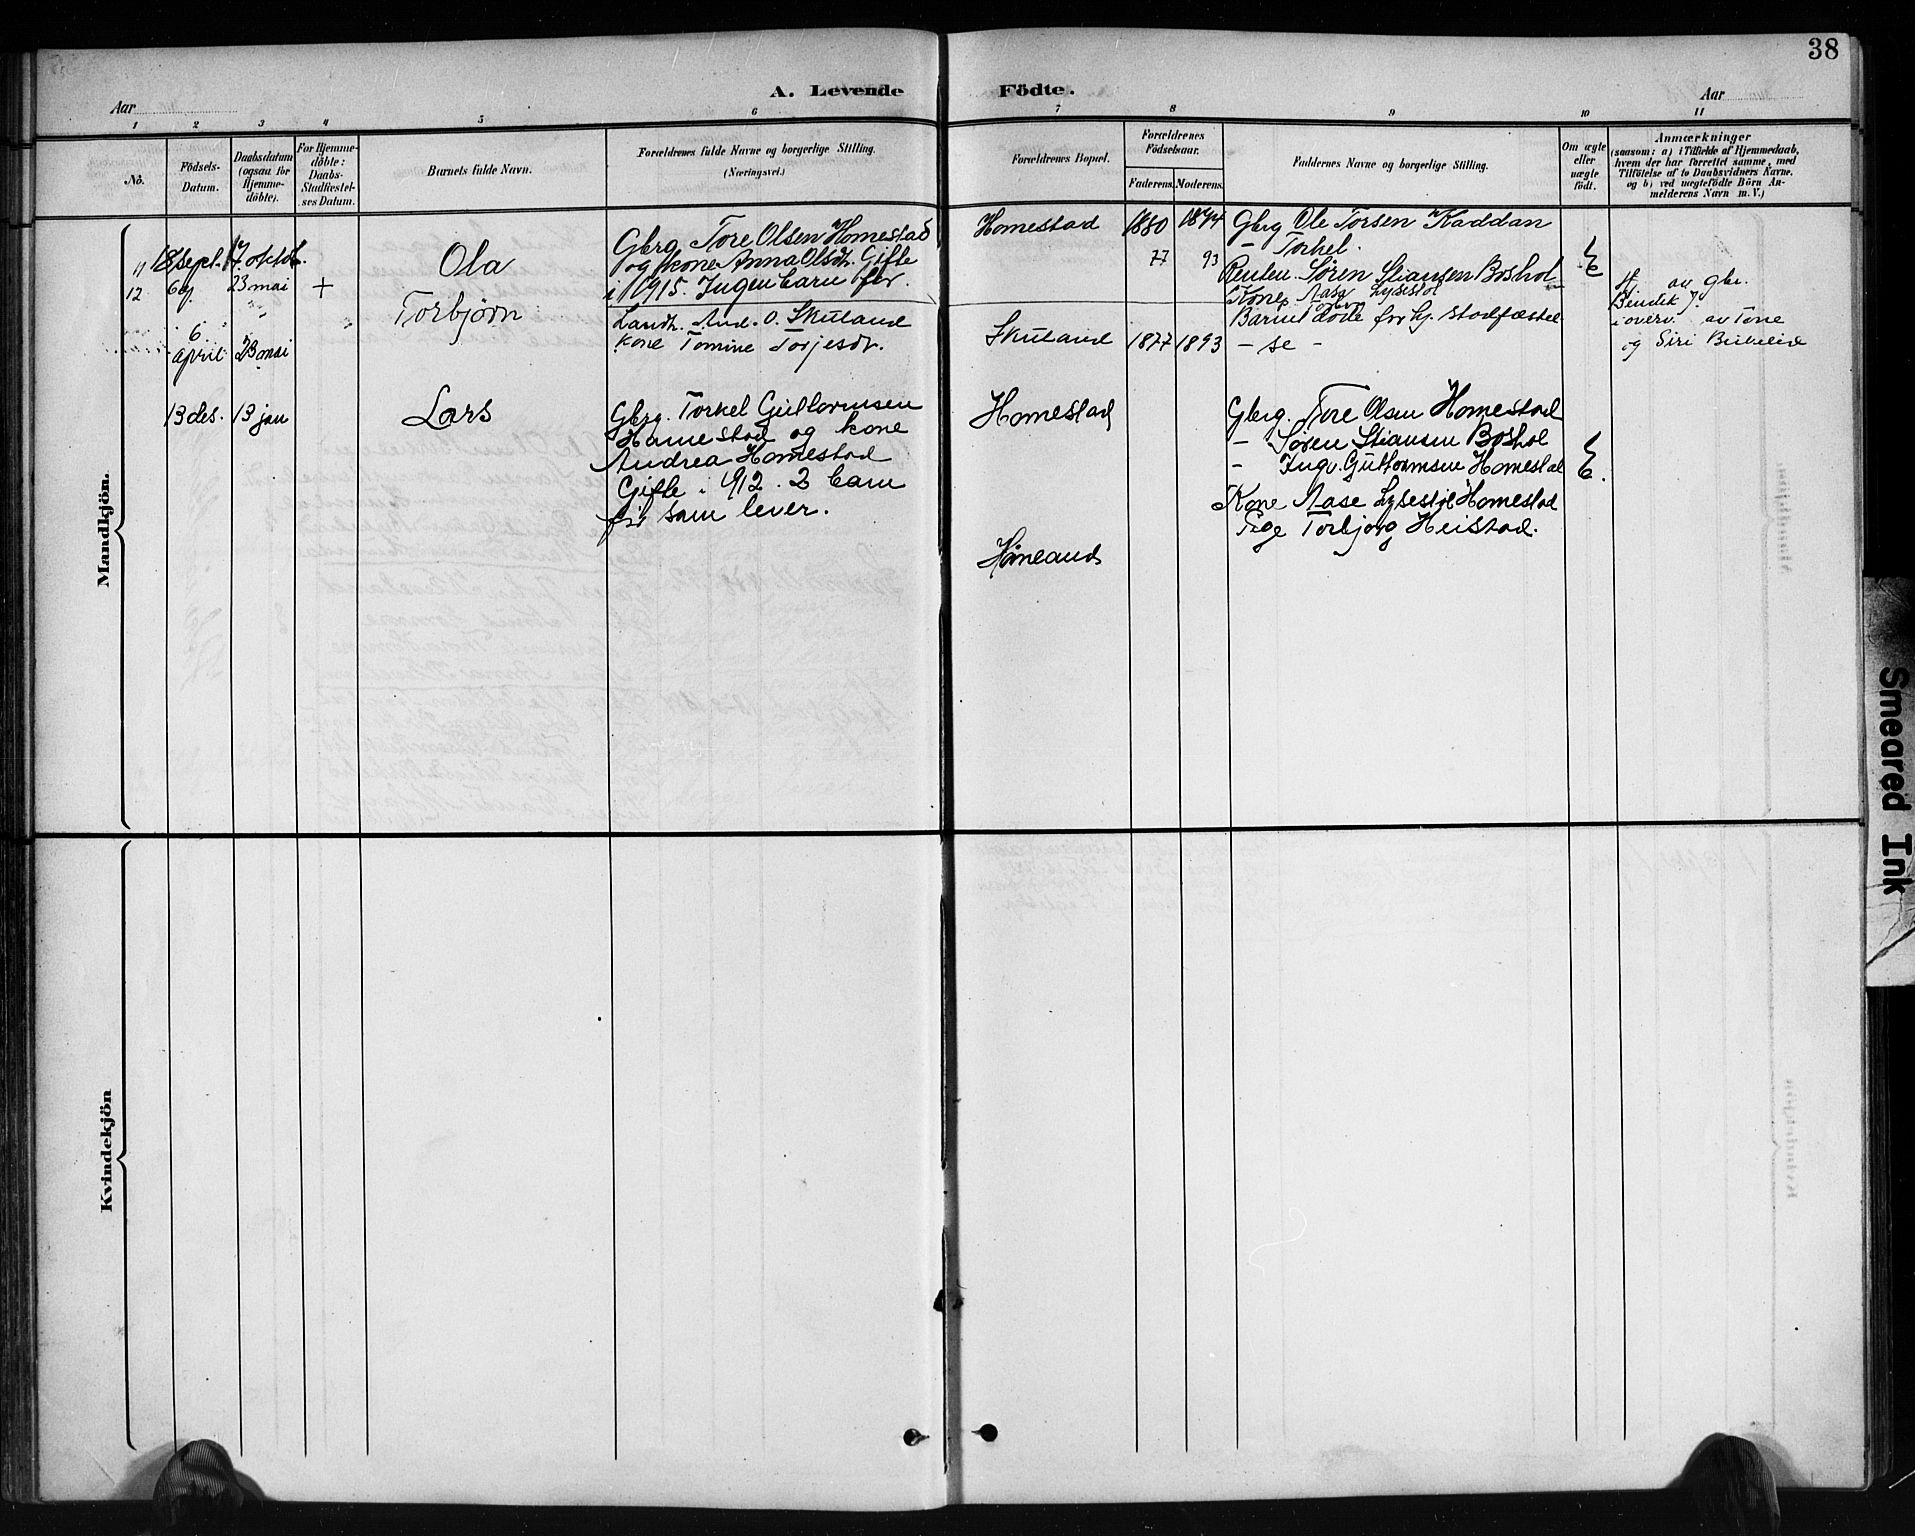 38
A. Levende Födte.
Aar
Aar
1 2 3 4 5 6 7 8 9 10 11
No.
Födsels-
Datum.
Daabsdatum
(ogsaa for
Hjemme-
döbte).
For Hjemme-
döbte:
Daabs-
Stadfæstel-
ses Datum.
Barnets fulde Navn.
Forældrenes fulde Navne og borgerlige Stilling.
(Næringsvei.)
Forældrenes Bopæl.
Forældrenes
Födselsaar.
Faderens. Moderens.
Faddernes Navne og borgerlige Stilling.
Om ægte
eller
uægte
födt.
Anmærkninger
(saasom: a) i Tilfælde af Hjemmedaab,
hvem der har forrettet samme, med
Tilföielse af to Daabsvidners Navne,
og b) ved uægtefödte Börn An-
melderens Navn m. V.)
Mandkjön.
11
18 sept. 17 oktob.
Ola
Gbrg. Tore Olsen Homestad
og kone Anna Olsdt. Gifte
i 1915. Ingen barn før.
Homestad
1880 1894
77 93
Gbrg Ole Torsen Kaddan
- Torkel.
Søren Stiansen Boshol
Kone Aase Lysestøl
Torborg
12
23 mai
+
Torbjørn
6
april 23 mai
Landh. And. O. Skuland
kone Tomine Torjesdt.
Skuland
1877 1893
Barnet døde før hj. stadfæstet
- se -
Hj. av gbr.
Bendik
i overv. av Tone
og Siri
13 des. 13 jan
Lars
Gbrg. Torkel Guttormsen
Homestad og kone
Andrea Homestad
Gifte i 912. 2 barn
før som lever.
Homestad
Gbrg. Tore Olsen Homestad
- Søren Stiansen Boshol
- Ingv. Guttormsen Homestad
Kone Aase Lysestøl Homestad
Pige Torbjorg Heistad.
E.
Kvindekjön
Smeared Ink